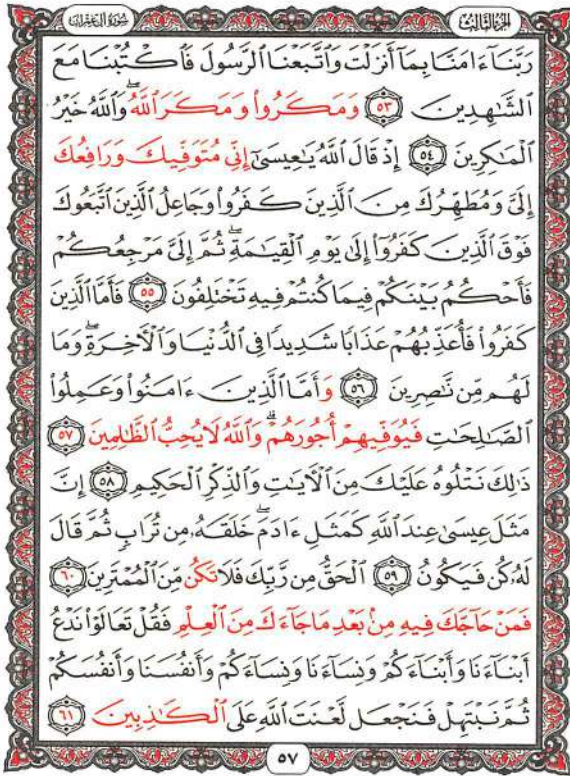 سورة آل عمران
الجزء الثالث
رَبَّنَآ ءَامَنَّا بِمَآ أَنزَلْتَ وَٱتَّبَعْنَا ٱلرَّسُولَ فَٱكْتُبْنَا مَعَ
ٱلشَّٰهِدِينَ ٥٣ وَمَكَرُوا۟ وَمَكَرَ ٱللَّهُ ۖ وَٱللَّهُ خَيْرُ
ٱلْمَٰكِرِينَ ٥٤ إِذْ قَالَ ٱللَّهُ يَٰعِيسَىٰٓ إِنِّى مُتَوَفِّيكَ وَرَافِعُكَ
إِلَىَّ وَمُطَهِّرُكَ مِنَ ٱلَّذِينَ كَفَرُوا۟ وَجَاعِلُ ٱلَّذِينَ ٱتَّبَعُوكَ
فَوْقَ ٱلَّذِينَ كَفَرُوٓا۟ إِلَىٰ يَوْمِ ٱلْقِيَٰمَةِ ۖ ثُمَّ إِلَىَّ مَرْجِعُكُمْ
فَأَحْكُمُ بَيْنَكُمْ فِيمَا كُنتُمْ فِيهِ تَخْتَلِفُونَ ٥٥ فَأَمَّا ٱلَّذِينَ
كَفَرُوا۟ فَأُعَذِّبُهُمْ عَذَابًا شَدِيدًا فِى ٱلدُّنْيَا وَٱلْءَاخِرَةِ ۖ وَمَا
لَهُم مِّن نَّٰصِرِينَ ٥٦ وَأَمَّا ٱلَّذِينَ ءَامَنُوا۟ وَعَمِلُوا۟
ٱلصَّٰلِحَٰتِ فَيُوَفِّيهِمْ أُجُورَهُمْ ۗ وَٱللَّهُ لَا يُحِبُّ ٱلظَّٰلِمِينَ ٥٧
ذَٰلِكَ نَتْلُوهُ عَلَيْكَ مِنَ ٱلْءَايَٰتِ وَٱلذِّكْرِ ٱلْحَكِيمِ ٥٨ إِنَّ
مَثَلَ عِيسَىٰ عِندَ ٱللَّهِ كَمَثَلِ ءَادَمَ ۖ خَلَقَهُۥ مِن تُرَابٍ ثُمَّ قَالَ
لَهُۥ كُن فَيَكُونُ ٥٩ ٱلْحَقُّ مِن رَّبِّكَ فَلَا تَكُن مِّنَ ٱلْمُمْتَرِينَ ٦٠
فَمَنْ حَآجَّكَ فِيهِ مِنۢ بَعْدِ مَا جَآءَكَ مِنَ ٱلْعِلْمِ فَقُلْ تَعَالَوْا۟ نَدْعُ
أَبْنَآءَنَا وَأَبْنَآءَكُمْ وَنِسَآءَنَا وَنِسَآءَكُمْ وَأَنفُسَنَا وَأَنفُسَكُمْ
ثُمَّ نَبْتَهِلْ فَنَجْعَل لَّعْنَتَ ٱللَّهِ عَلَى ٱلْكَٰذِبِينَ ٦١
٥٧